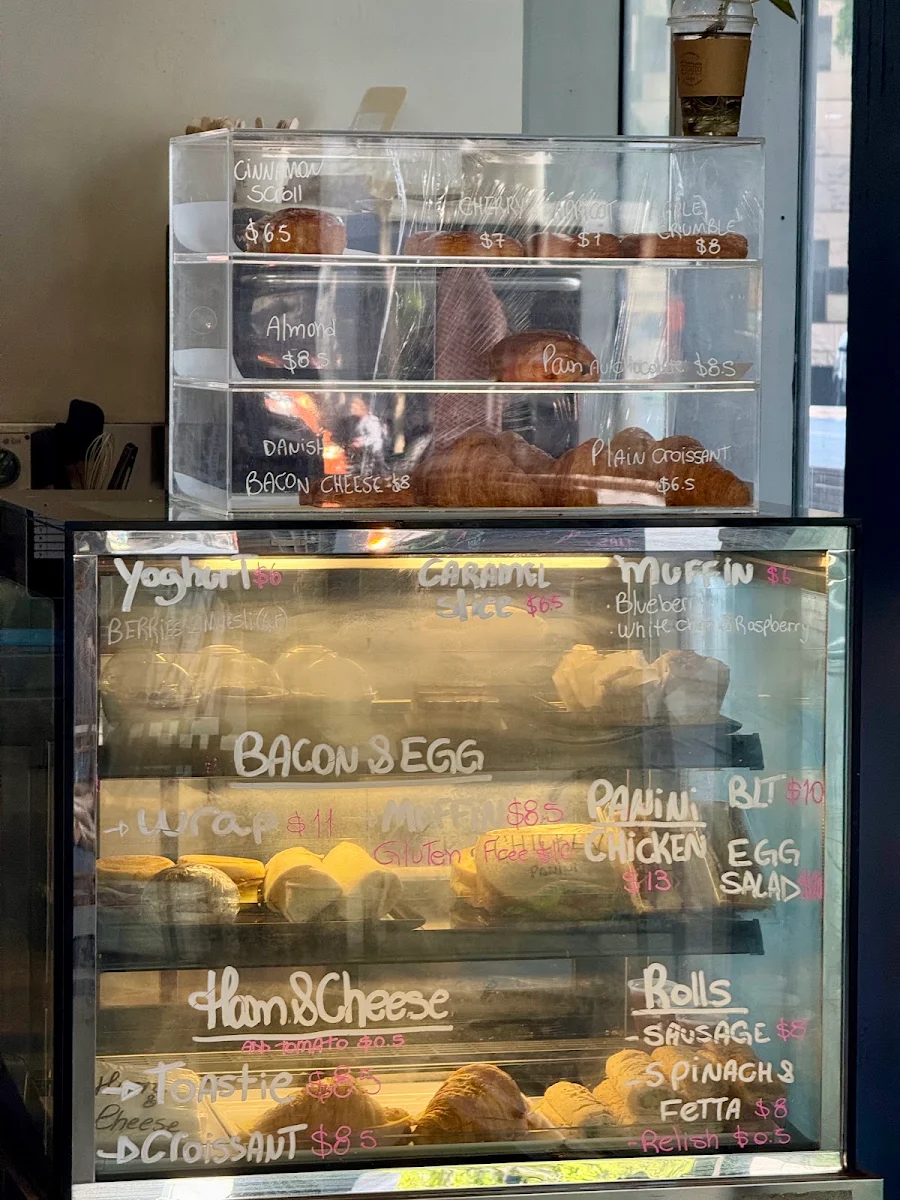 CINNAMON
SCROLL
$6.5
CHERRY
$7
APRICOT
$7
APPLE
CRUMBLE
$8
Almond
$8.5
Pain Au chocolate $8.5
DANISH
BACON CHEESE-$8
PLAIN CROISSANT
$6.5
YOGHURT $6
BERRIES & Mutsli
CARAMEL
Slice $6.5
MUFFIN $6
· Blueberry
· White choc & Raspberry
BACON & EGG
→ Wrap $11
MUFFIN $8.5
Gluten Free
PANINI
PANINI
CHICKEN
$13
BLT $10
EGG
SALAD
Ham & Cheese
ADD TOMATO $0.5
→ TOASTIE $8.5
→ CROISSANT $8.5
Ham
&
Cheese
Rolls
- SAUSAGE $8
- SPINACH &
FETTA $8
- Relish $0.5